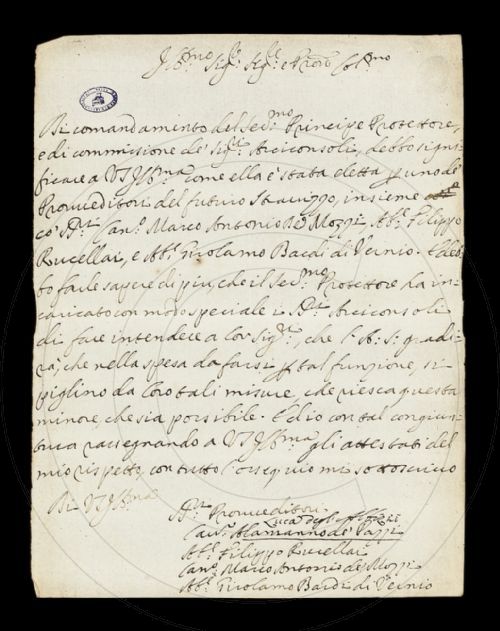 Ill:mo Sig:re Sig:re e Pron Col:mo
Di comandamento del Ser:mo Principe Protettore,
e di commissione de' Sig:ri Arciconsoli, debbo signi-
ficare a VS Ill:ma come ella è stata eletta p uno de'
Provveditori del futuro Stravizzo, insieme
co' SS:ri Can:co Marco Antonio de' Mozzi, Ab:e Filippo
Rucellai, e Ab:e Girolamo Bardi di Vernio. E deb-
bo farle sapere di più, che il Ser:mo Protettore ha in-
caricato con modo speciale i SS:ri Arciconsoli
di fare intendere a lor Sig:ri, che l'A. S. gradi-
rà, che nella spesa da farsi p tal funzione, si
piglino da loro tali misure, che riesca questa
minore, che sia possibile. Ed io con tal congiun-
tura rassegnando a VS Ill:ma gli attestati del
mio rispetto, con tutto l'ossequio mi sottoscrivo
Di VS Ill:ma
SS:ri Provveditori
Luca degli
Alamanno de' Pazzi
Ab:e Filippo Rucellai
Can:co Marco Antonio de' Mozzi
Ab:e Girolamo Bardi di Vernio